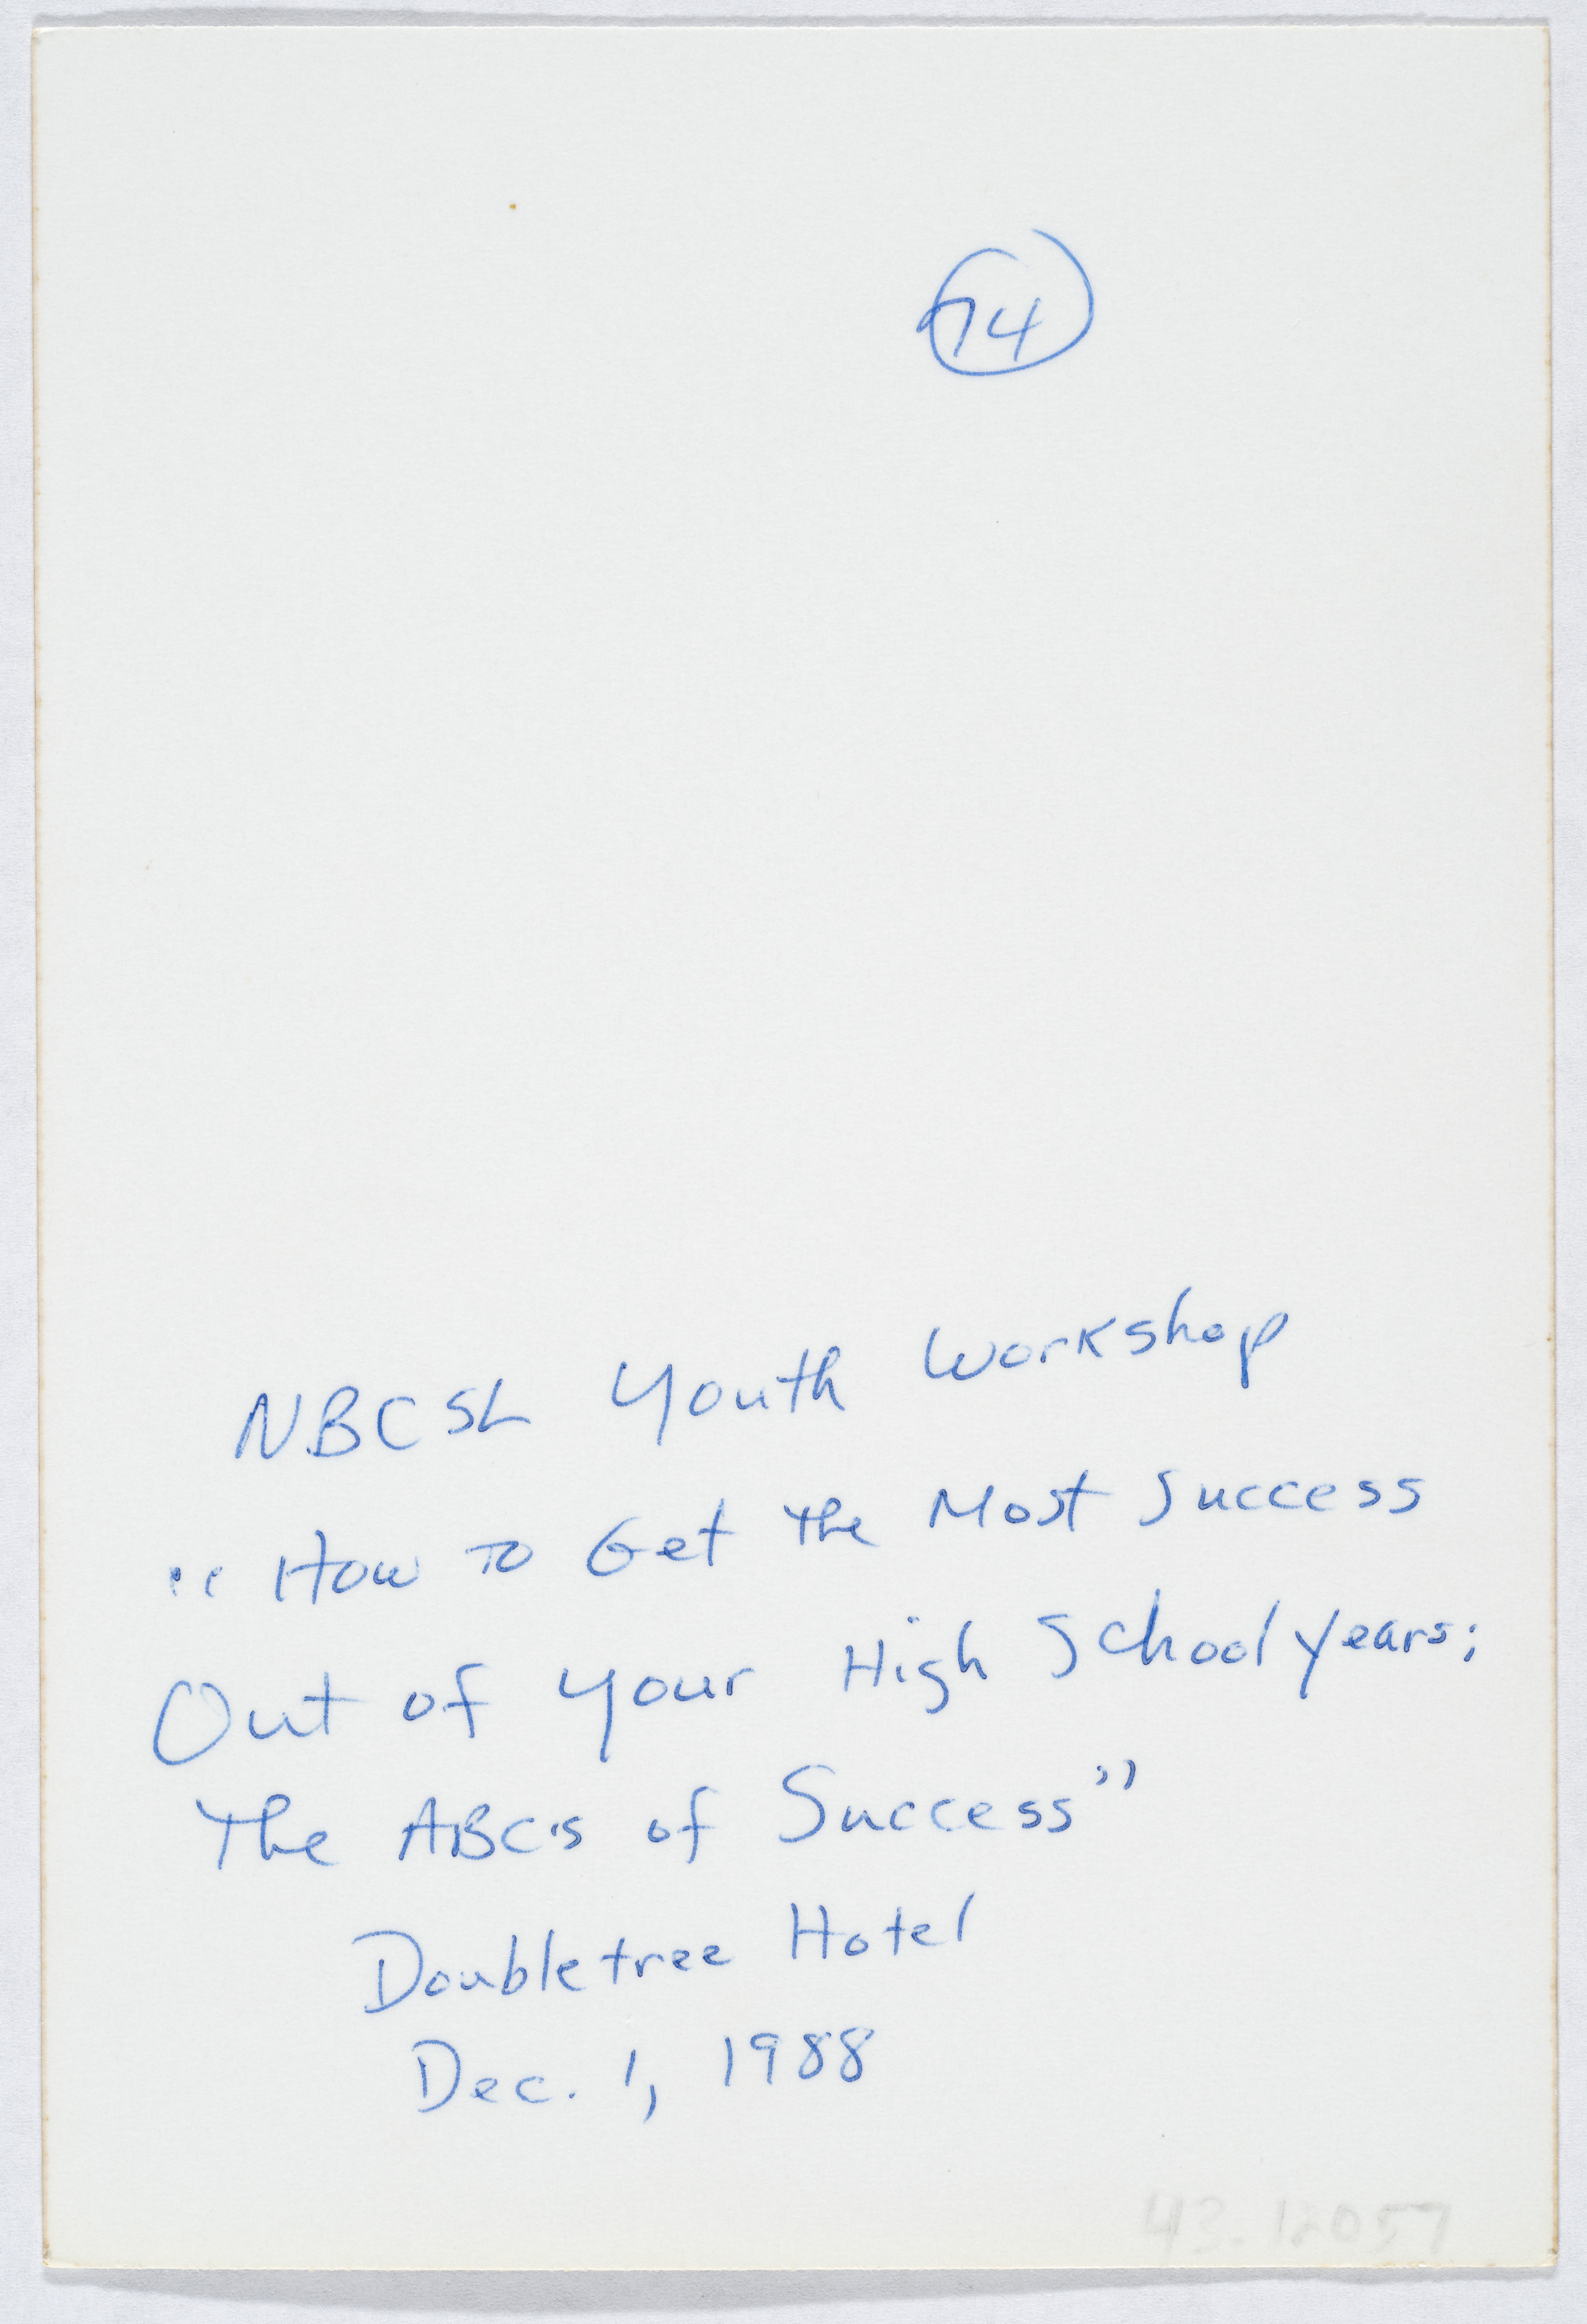 74
NBCSL Youth Workshop
"How to Get the Most Success
Out of your High School years:
The ABC's of Success"
Doubletree Hotel
Dec. 1, 1988
43.12057